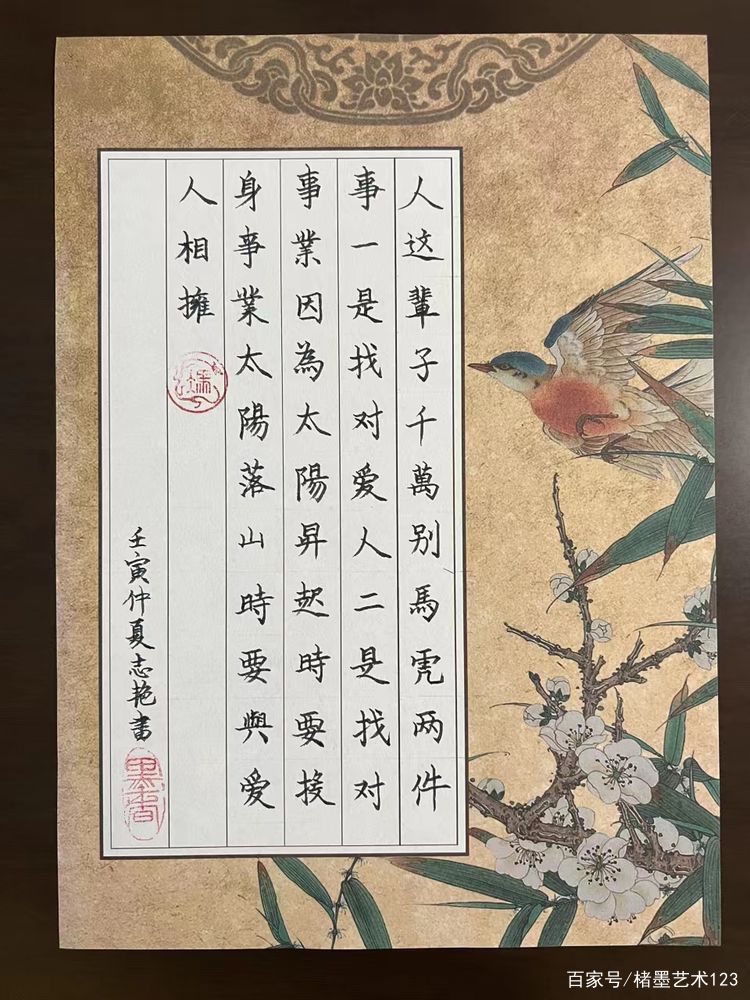 人这輩子千萬别馬虎两件
事一是找对爱人二是找对
事業因為太陽昇起時要投
身事業太陽落山時要與爱
人相擁
壬寅仲夏志艳書
墨香
百家号/楮墨艺术123